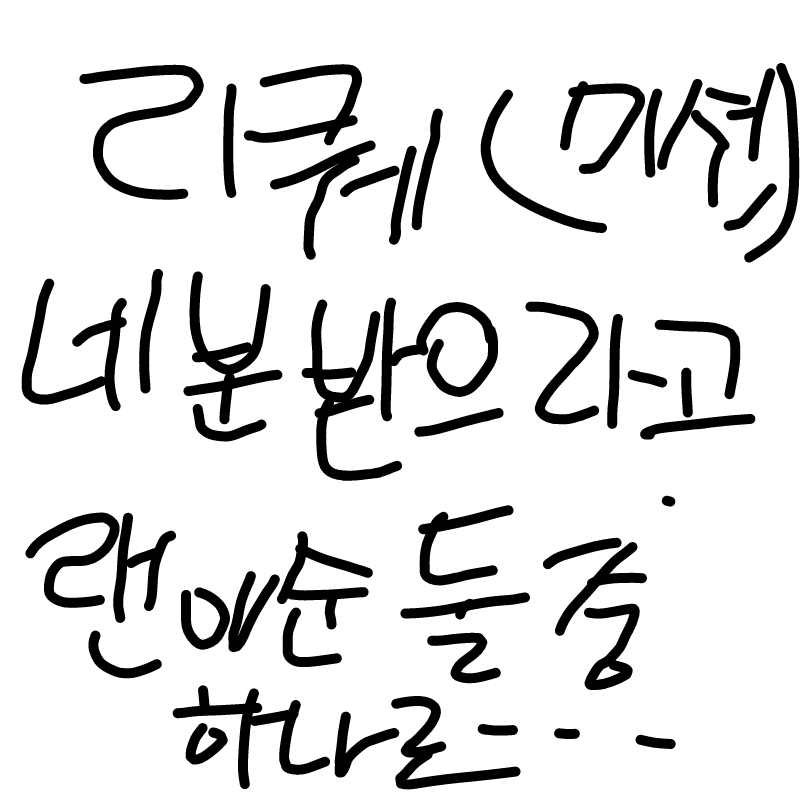 리퀘 (미션)
네분받으라고
랜야순들중
하나로---